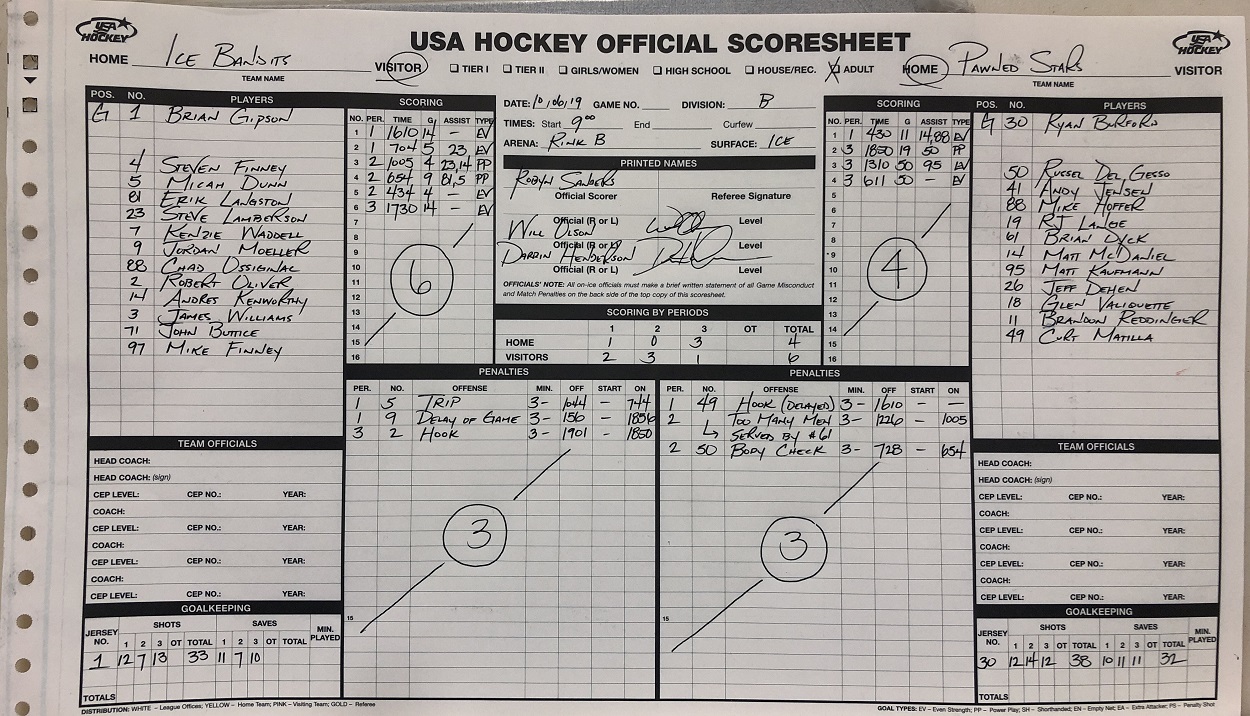 USA HOCKEY
USA HOCKEY OFFICIAL SCORESHEET
USA HOCKEY
HOME ICE BANDITS VISITOR
TEAM NAME
☐ TIER I ☐ TIER II ☐ GIRLS/WOMEN ☐ HIGH SCHOOL ☐ HOUSE/REC. ☒ ADULT
HOME PAWNED STARS VISITOR
TEAM NAME
POS. NO. PLAYERS
G 1 BRIAN GIPSON
4 STEVEN FINNEY
5 MICAH DUNN
81 ERIK LANGSTON
23 STEVE LAMBERSON
7 KENZIE WADDELL
9 JORDAN MOELLER
88 CHAD OSSIGINAC
2 ROBERT OLIVER
14 ANDRES KENWORTHY
3 JAMES WILLIAMS
71 JOHN BUTTICE
97 MIKE FINNEY
SCORING
NO. PER. TIME G ASSIST TYPE
1 1 1610 14 - EV
2 1 704 5 23 EV
3 2 1005 4 23,14 PP
4 2 654 9 81,5 PP
5 2 434 4 - EV
6 3 1730 14 - EV
7
8
9
10
11
12
13
14
15
16
6
DATE: 10/06/19 GAME NO. DIVISION: B
TIMES: Start 9:00 End Curfew
ARENA: RINK B SURFACE: ICE
PRINTED NAMES
ROBYN SANDERS
Official Scorer Referee Signature
WILL OLSON
Official (R or L) Level
DARRIN HENDERSON
Official (R or L) Level
Official (R or L) Level
OFFICIALS' NOTE: All on-ice officials must make a brief written statement of all Game Misconduct
and Match Penalties on the back side of the top copy of this scoresheet.
SCORING BY PERIODS
1 2 3 OT TOTAL
HOME 1 0 3 4
VISITORS 2 3 1 6
SCORING
NO. PER. TIME G ASSIST TYPE
1 1 430 11 14,88 EV
2 3 1850 19 50 PP
3 3 1310 50 95 EV
4 3 611 50 - EV
5
6
7
8
9
10
11
12
13
14
15
16
4
POS. NO. PLAYERS
G 30 RYAN BURFORD
50 RUSSEL DEL GESSO
41 ANDY JENSEN
88 MIKE HOFFER
19 RJ LANGE
61 BRIAN DYCK
14 MATT MCDANIEL
95 MATT KAUFMANN
26 JEFF DEHEN
18 GLEN VALIQUETTE
11 BRANDON REDDINGER
49 CURT MATILLA
PENALTIES
PER. NO. OFFENSE MIN. OFF START ON
1 5 TRIP 3- 1044 - 744
1 9 DELAY OF GAME 3- 156 - 1856
3 2 HOOK 3- 1901 - 1850
3
15
PENALTIES
PER. NO. OFFENSE MIN. OFF START ON
1 49 HOOK (DELAYED) 3- 1610 - -
2 TOO MANY MEN 3- 1226 - 1005
↳ SERVED BY #61
2 50 BODY CHECK 3- 728 - 654
3
15
TEAM OFFICIALS
HEAD COACH:
HEAD COACH: (sign)
CEP LEVEL: CEP NO.: YEAR:
COACH:
CEP LEVEL: CEP NO.: YEAR:
COACH:
CEP LEVEL: CEP NO.: YEAR:
COACH:
CEP LEVEL: CEP NO.: YEAR:
GOALKEEPING
JERSEY NO. SHOTS SAVES MIN. PLAYED
1 2 3 OT TOTAL 1 2 3 OT TOTAL
1 12 7 13 33 11 7 10
TOTALS
TEAM OFFICIALS
HEAD COACH:
HEAD COACH: (sign)
CEP LEVEL: CEP NO.: YEAR:
COACH:
CEP LEVEL: CEP NO.: YEAR:
COACH:
CEP LEVEL: CEP NO.: YEAR:
COACH:
CEP LEVEL: CEP NO.: YEAR:
GOALKEEPING
JERSEY NO. SHOTS SAVES MIN. PLAYED
1 2 3 OT TOTAL 1 2 3 OT TOTAL
30 12 14 12 38 10 11 11 32
TOTALS
DISTRIBUTION: WHITE – League Offices; YELLOW – Home Team; PINK – Visiting Team; GOLD – Referee
GOAL TYPES: EV – Even Strength; PP – Power Play; SH – Shorthanded; EN – Empty Net; EA – Extra Attacker; PS – Penalty Shot